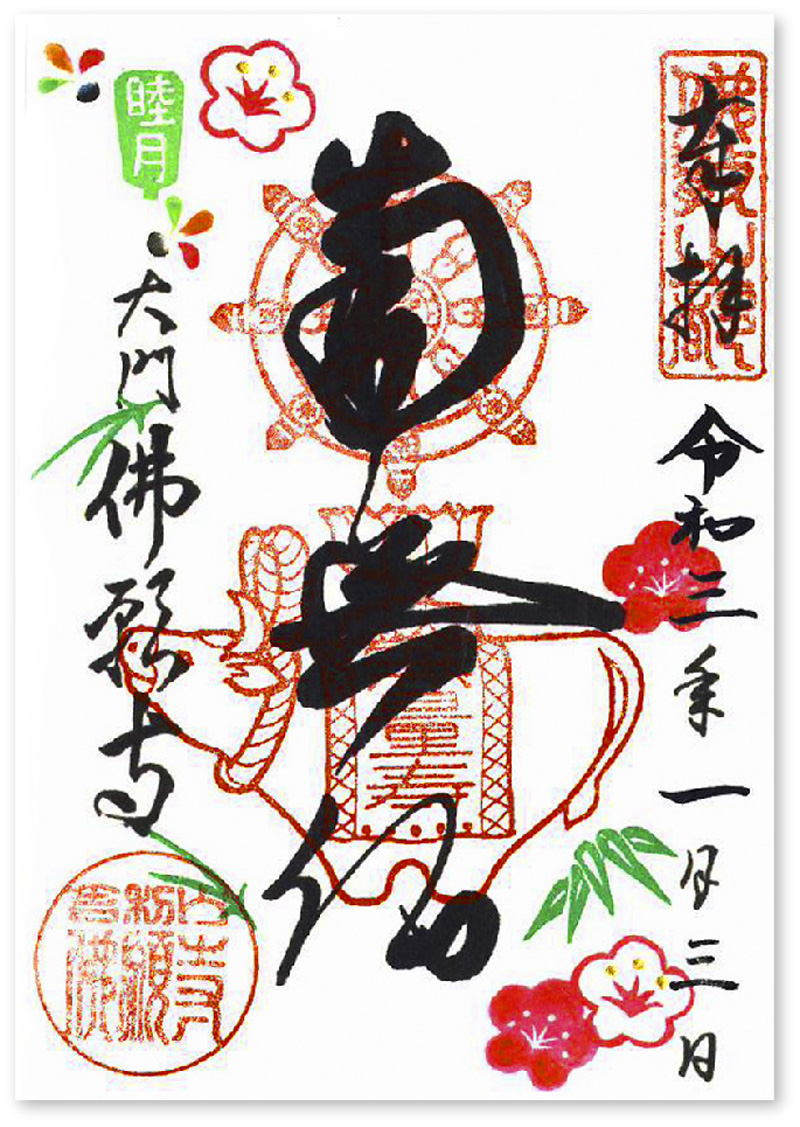 奉拝
令和三年一月三日
南無仏
睦月
大門佛願寺